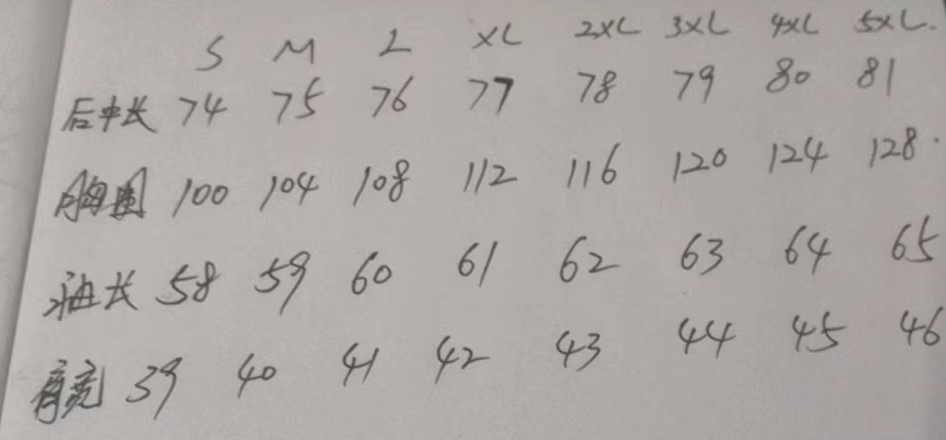 S M L XL 2XL 3XL 4XL 5XL.
后中长 74 75 76 77 78 79 80 81
胸围 100 104 108 112 116 120 124 128.
袖长 58 59 60 61 62 63 64 65
肩宽 39 40 41 42 43 44 45 46